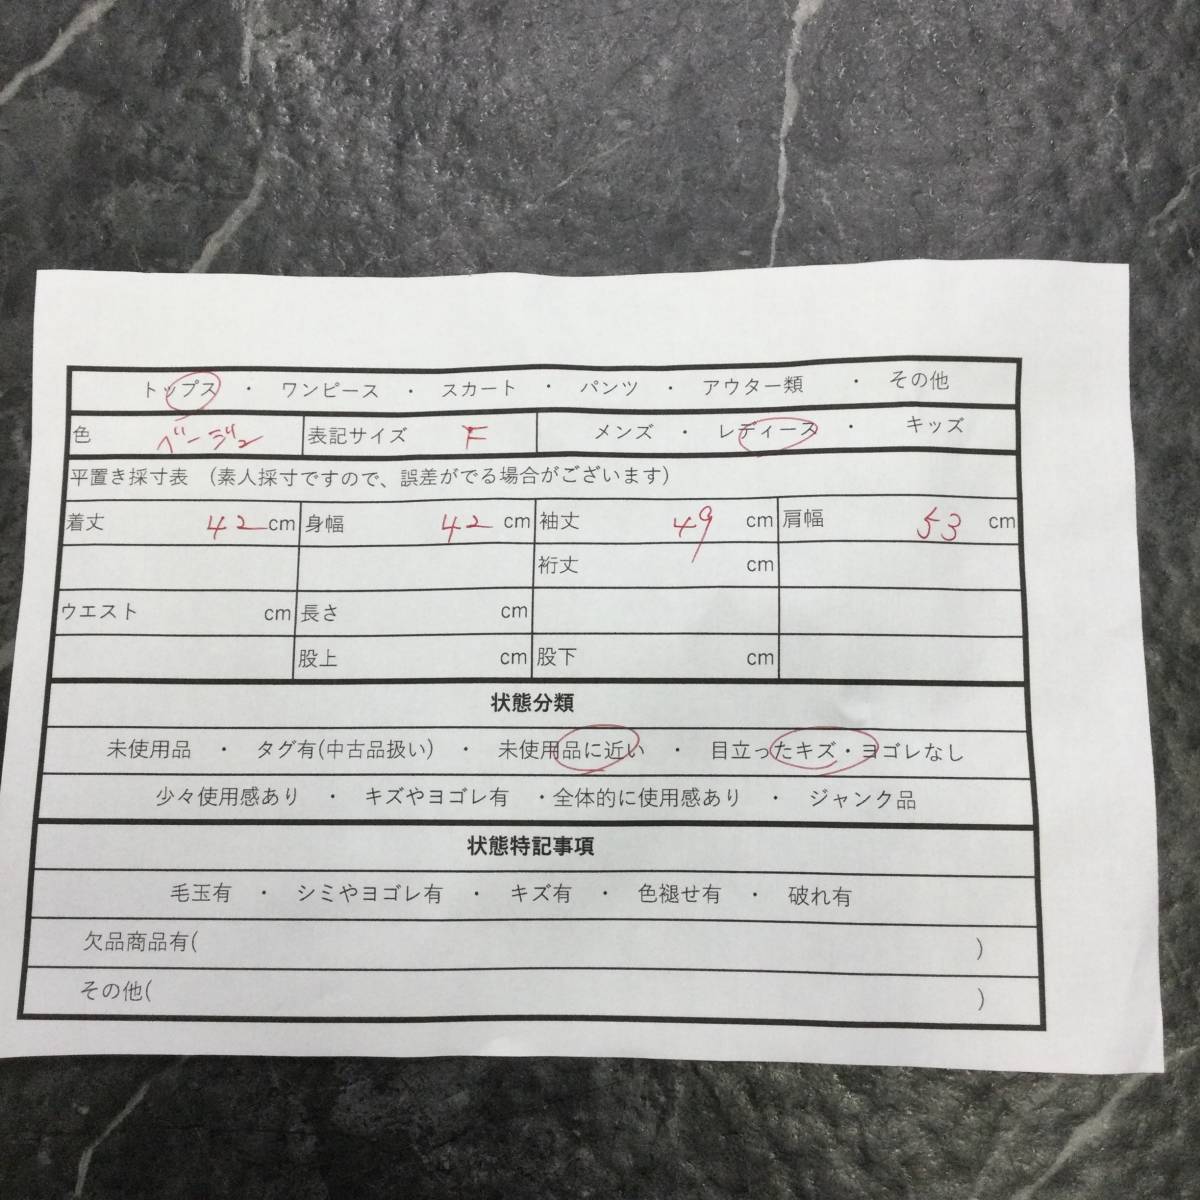 トップス ・ ワンピース ・ スカート ・ パンツ ・ アウター類 ・ その他
色 ベージュ 表記サイズ F メンズ ・ レディース ・ キッズ
平置き採寸表 (素人採寸ですので、誤差がでる場合がございます)
着丈 42cm 身幅 42 cm 袖丈 49 cm 肩幅 53 cm
裄丈 cm
ウエスト cm 長さ cm
股上 cm 股下 cm
状態分類
未使用品 ・ タグ有(中古品扱い) ・ 未使用品に近い ・ 目立ったキズ・ヨゴレなし
少々使用感あり ・ キズやヨゴレ有 ・全体的に使用感あり ・ ジャンク品
状態特記事項
毛玉有 ・ シミやヨゴレ有 ・ キズ有 ・ 色褪せ有 ・ 破れ有
欠品商品有( )
その他( )